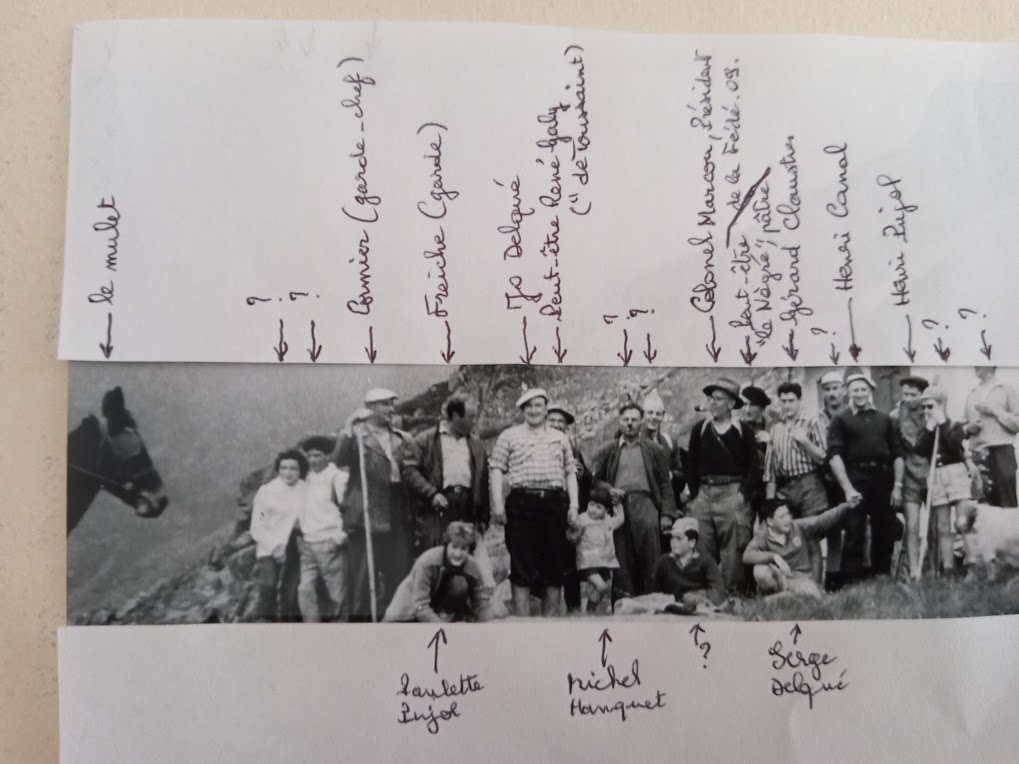 le mulet
?
?
Cornier (garde-chef)
Freiche (garde)
Jo Delqué
Peut-être René Galy
("de Toussaint)
?
?
Colonel Marcou, Président
de la Fédé. 09.
peut-être
"le Nègré" pâtre
Gérard Claustres
?
Henri Canal
Henri Pujol
?
?
Paulette
Pujol
Michel
Hanquet
?
Serge
Delqué